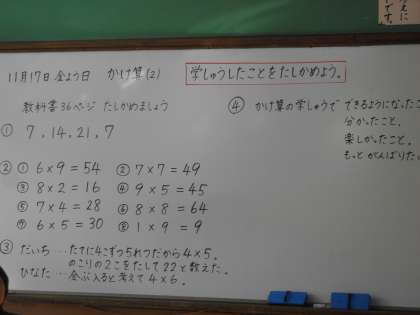 えに
です。
11月17日 金よう日 かけ算(2) 学しゅうしたことをたしかめよう。
教科書36ページ たしかめましょう
① 7, 14, 21, 7
② ① 6×9=54 ② 7×7=49
③ 8×2=16 ④ 9×5=45
⑤ 7×4=28 ⑥ 8×8=64
⑦ 6×5=30 ⑧ 1×9=9
③ だいち…たてに4こずつ5れつだから4×5。
のこりの2こをたして22と数えた。
ひなた…全ぶ入ると考えて4×6。
④ かけ算の学しゅうで できるようになったこ
分かったこと、
楽しかったこと、
もっとがんばりた